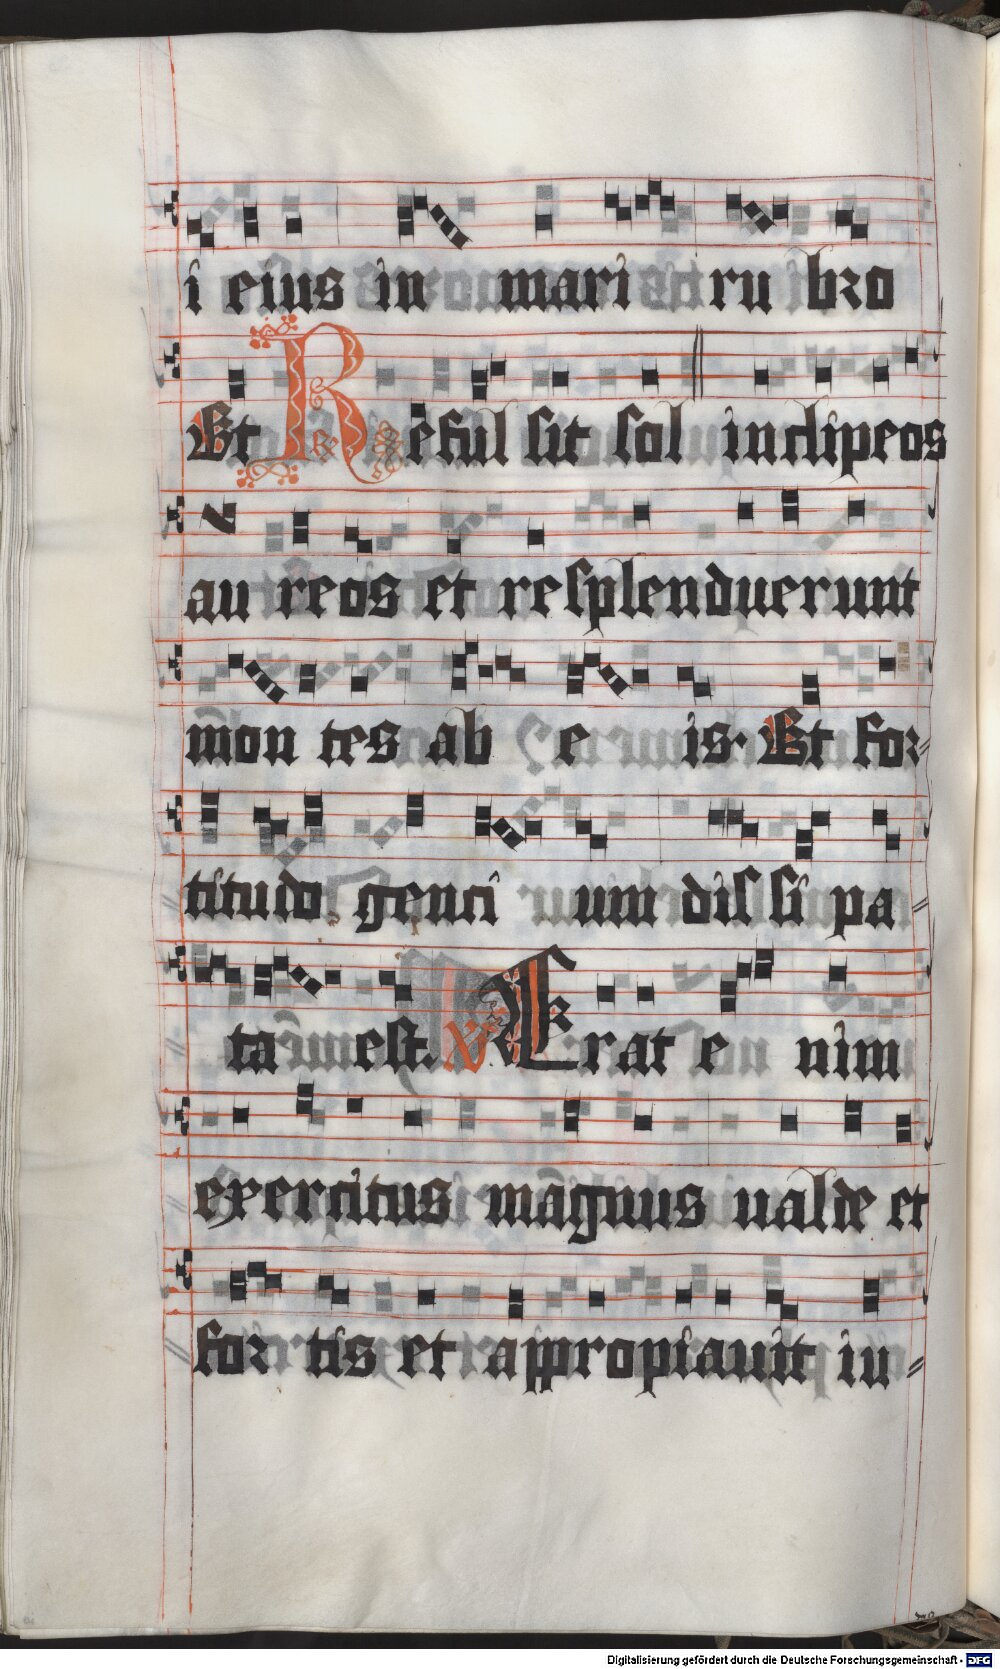 i eius in mari ru bro
Et Reful sit sol in clipeos
au reos et resplenduerunt
mon tes ab e is. Et for=
titudo genti um dissi pa=
ta est. V Erat e nim
exercitus magnus ualde et
for tis et appropiauit iu=
Digitalisierung gefördert durch die Deutsche Forschungsgemeinschaft - DFG